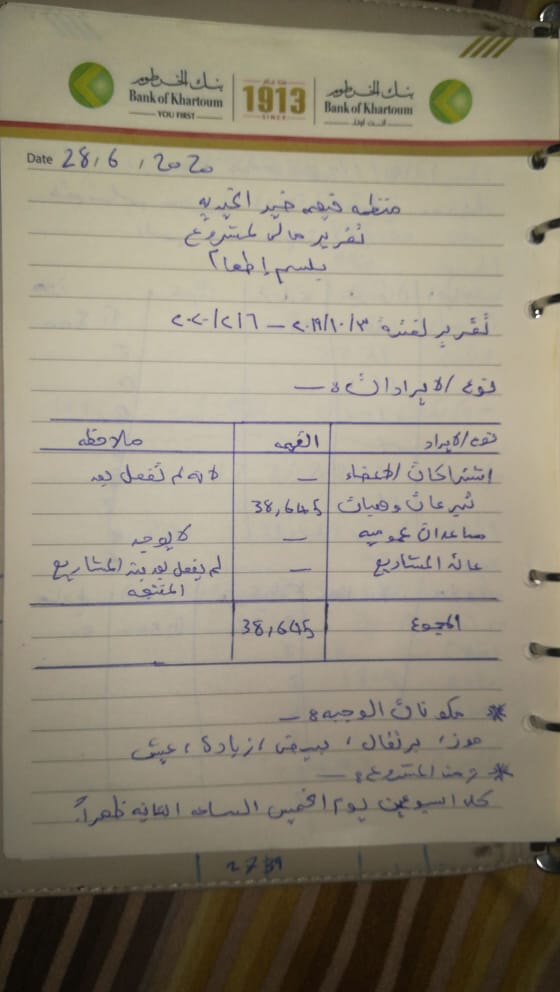 بنك الخرطوم
Bank of Khartoum
YOU FIRST
1913
SINCE
بنك الخرطوم
Bank of Khartoum
انت اولاً
Date 28, 6, 2020
منظمه فيهم خير الخيريه
تقرير مالى لمشروع
بلسم إطعام
تقرير لفترة ٢٠١٩/١٠/٣ – ٢٠٢٠/٢/٦
نوع الإيرادات :-
نوع الإيراد القيمه ملاحظه
اشتراكات الأعضاء – لانه لم تفعل بعد
تبرعات وهبات 38,645
مساعدات عموميه – لا يوجد
عائد المشاريع – لم يفعل بعد بند المشاريع
المنتجه
المجموع 38,645
* مكونات الوجبه :-
موز، برتقال، بيض، زبادة، عيش
* زمن المشروع :-
كل اسبوعين يوم الخميس الساعه الثانيه ظهراً.